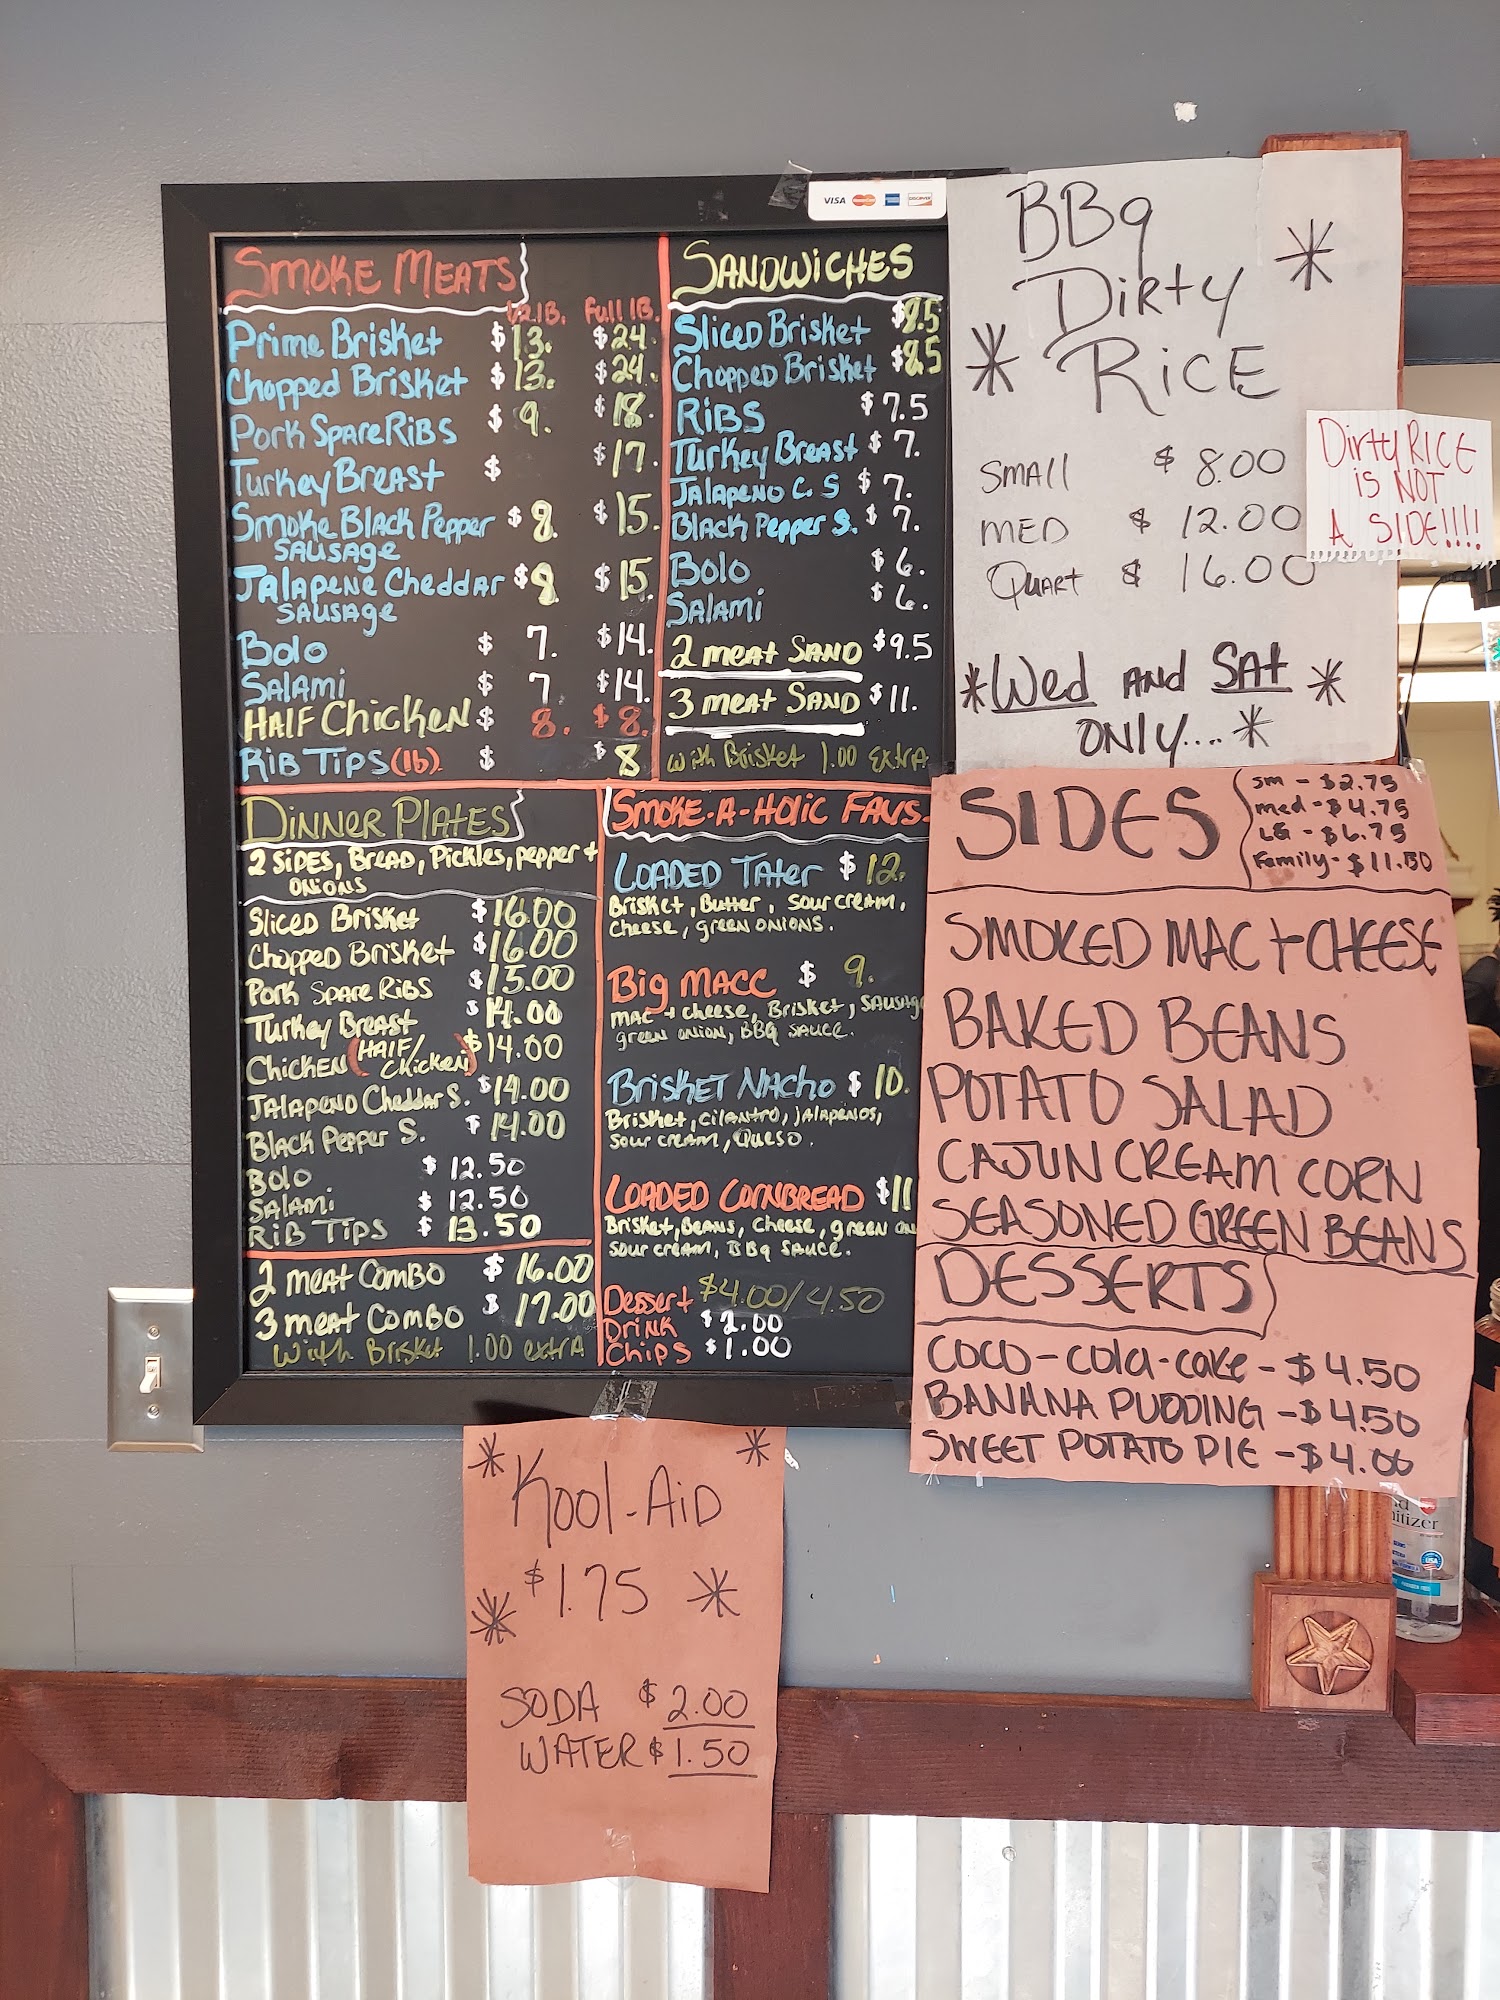 VISA DISCOVER
SMOKE MEATS
1/2 lB. Full lB.
Prime Brisket $ 13. $24.
Chopped Brisket $ 13. $24.
Pork Spare Ribs $ 9. $18.
Turkey Breast $ $17.
Smoke Black Pepper $ 8. $15.
SAUSAGE
JAlAPene Cheddar $ 8. $15.
SAUSAGE
Bolo $ 7. $14.
SALAMi $ 7 $14.
HALF Chicken $ 8. $8.
RiB TiPS (lb) $ $8
SANDWiCHES
Sliced Brisket $8.5
Chopped Brisket $8.5
RiBS $7.5
Turkey Breast $7.
JAlApeno C. S $7.
BlAck Pepper S. $7.
Bolo $6.
SALAMi $6.
2 meAt SAND $9.5
3 meAt SAND $11.
with Brisket 1.00 extrA
DiNNER PlAtES
2 SiDES, BreAD, Pickles, pepper +
ONiONS
Sliced Brisket $16.00
Chopped Brisket $16.00
Pork SpAre RiBS $15.00
Turkey BreAst $14.00
ChickEN (HAlF/ Chicken) $14.00
JAlApeno CheddAr S. $14.00
BlAck Pepper S. $14.00
Bolo $12.50
SAlAmi $12.50
RiB TiPS $13.50
2 meAt COMBO $16.00
3 meAt COMBO $17.00
With Brisket 1.00 extrA
SMOKE-A-HOliC FAVS.
LOADED TAter $12.
Brisket, Butter, Sour creAm,
Cheese, green ONiONS.
Big MACC $ 9.
MAC + cheese, Brisket, SAUSAg
green onion, BBq SAUCE.
BrisKET NAcho $10.
Brisket, CilANtro, jAlApeños,
Sour creAm, Queso.
LOADED CorNBREAD $11
Brisket, BeANs, cheese, green on
Sour creAm, BBq SAuce.
Dessert $4.00/4.50
DRiNK $2.00
Chips $1.00
BBq
Dirty
RiCE
SMAll $ 8.00
MED $ 12.00
QuArt $ 16.00
*Wed AND SAt *
ONlY.... *
Dirty RiCE
iS NOT
A SiDE!!!!
SIDES
sm - $2.75
med - $4.75
LG - $6.75
Family - $11.50
SMOKED MAC + CHEESE
BAKED BEANS
POTATO SALAD
CAJUN CREAM CORN
SEASONED GREEN BEANS
DESSERTS
COCO-COlA-CAKE - $4.50
BANANA PUDDING - $4.50
SWEET POTATO PIE - $4.00
Kool-AiD
$1.75
SODA $2.00
WATER $1.50